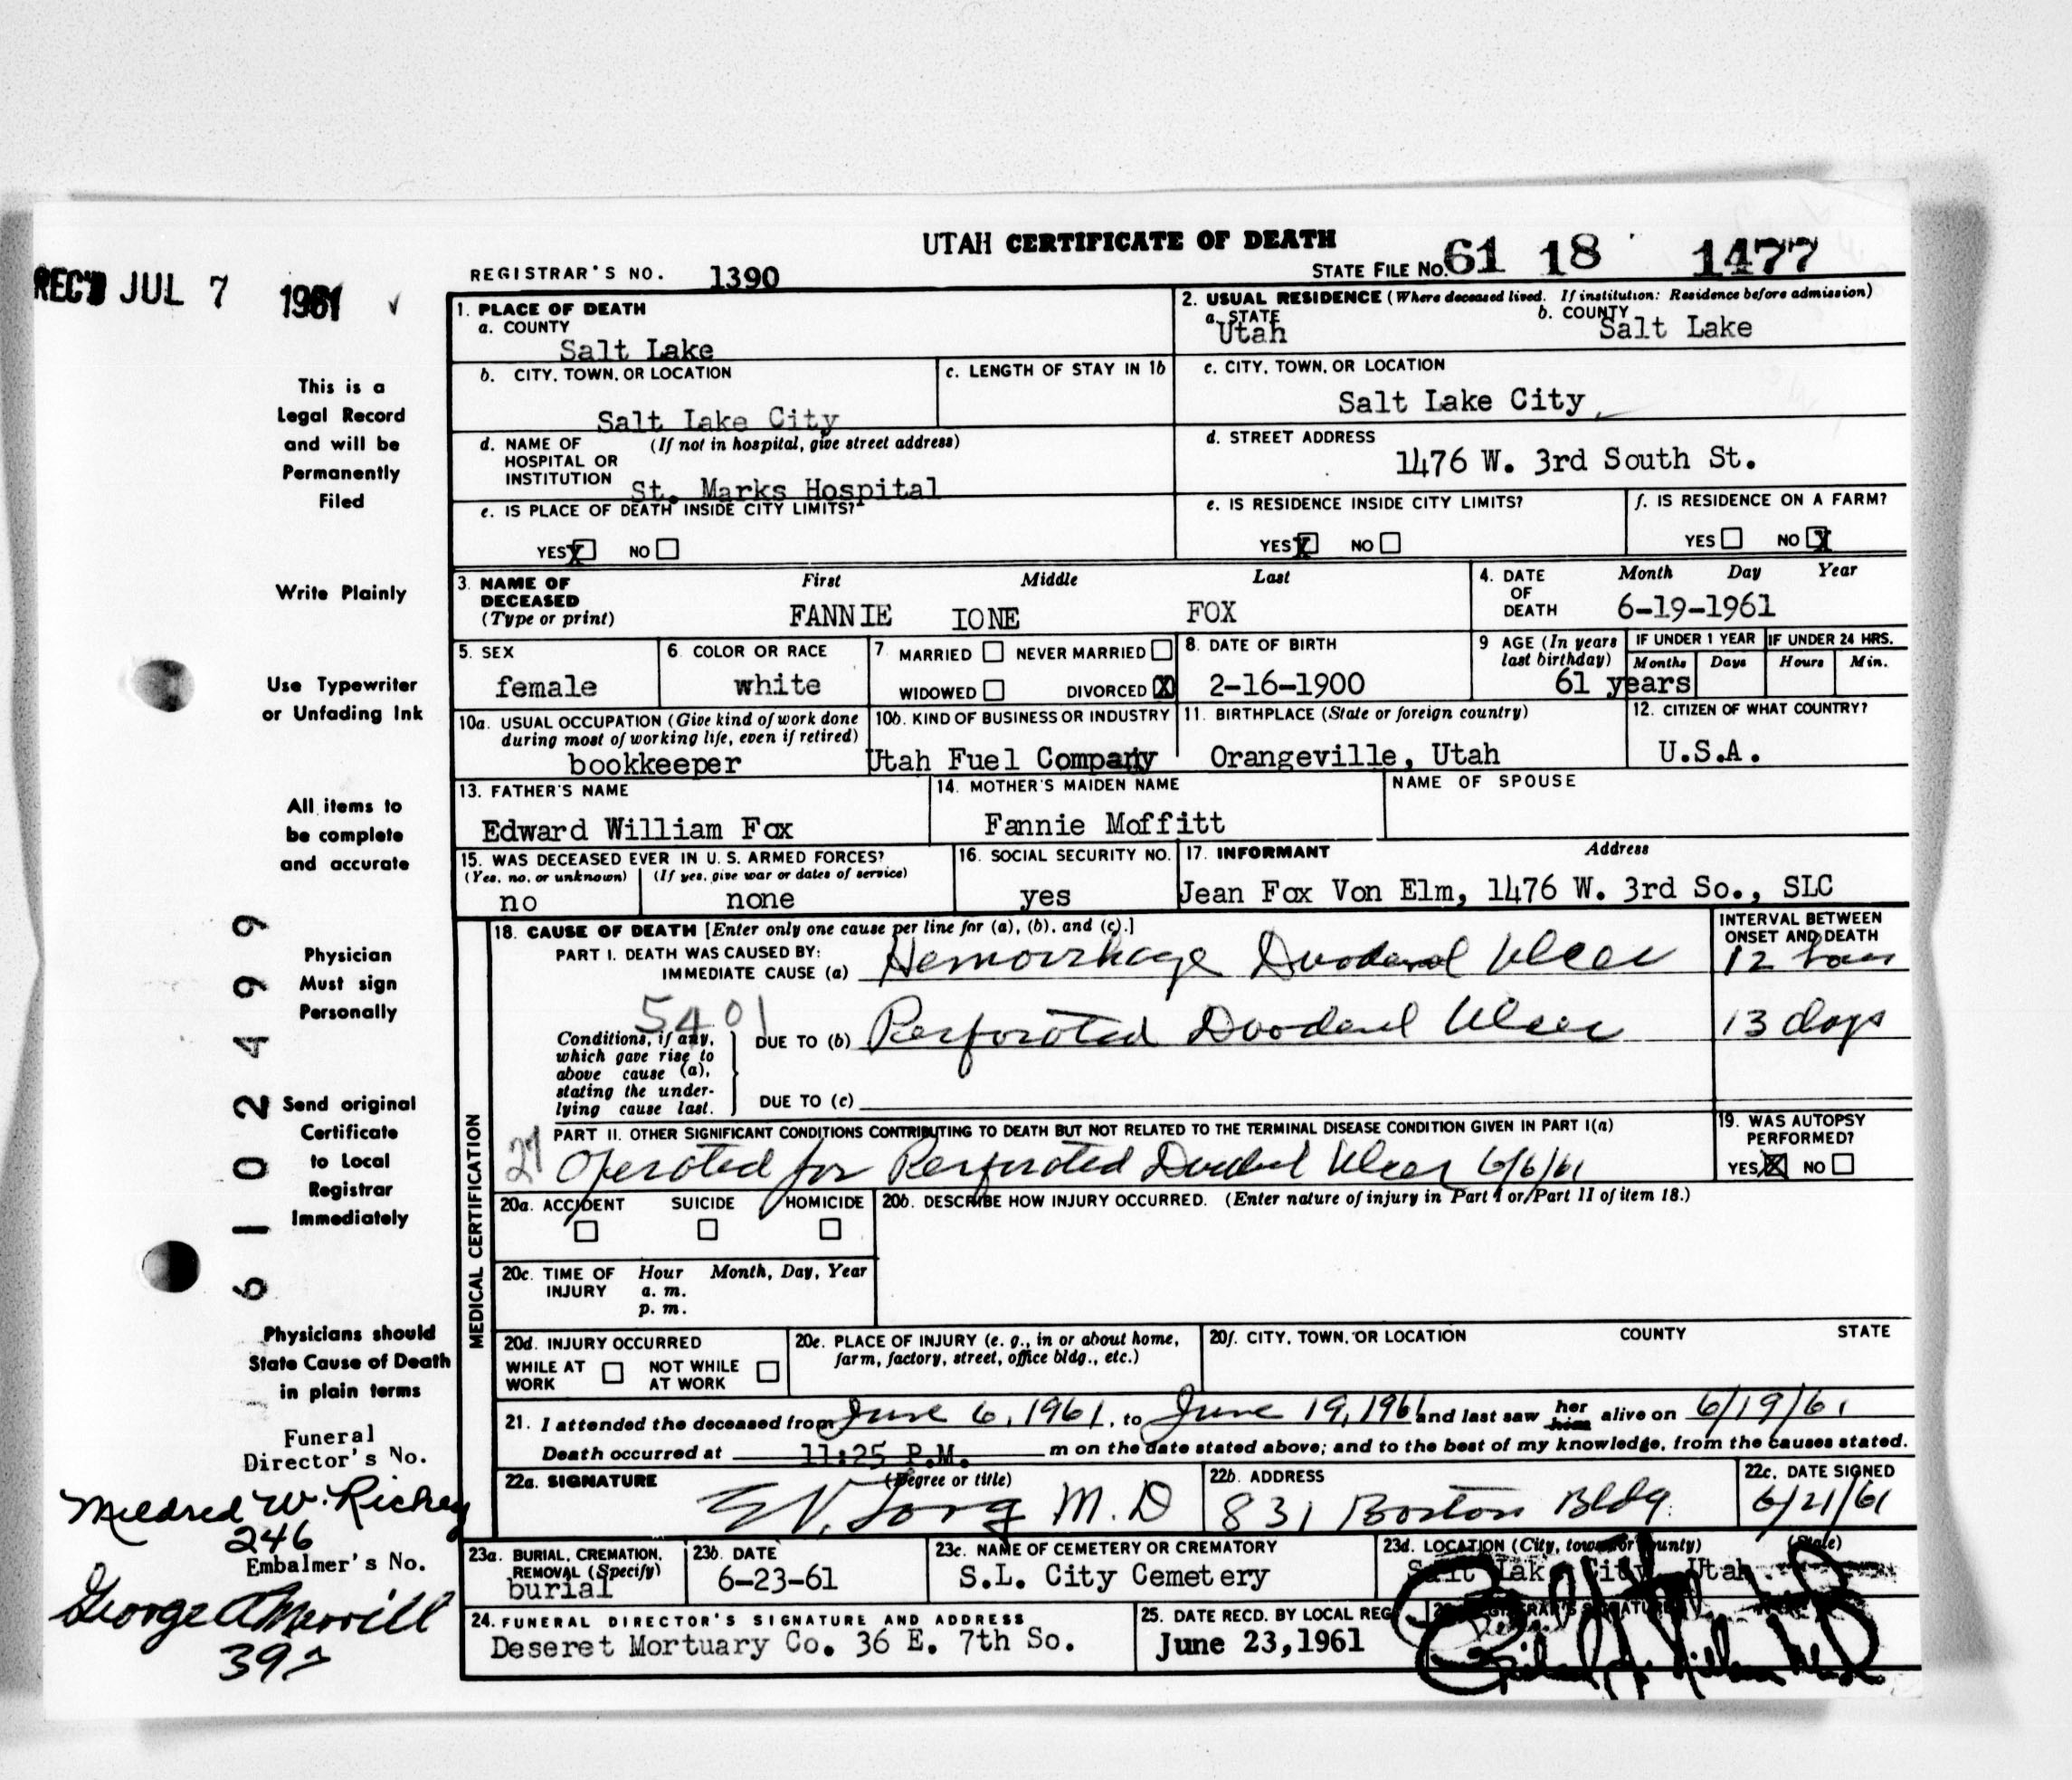 UTAH CERTIFICATE OF DEATH
REC'D JUL 7 1961
REGISTRAR'S NO. 1390
STATE FILE NO. 61 18 1477
1. PLACE OF DEATH
a. COUNTY
Salt Lake
2. USUAL RESIDENCE (Where deceased lived. If institution: Residence before admission)
a. STATE
Utah
b. COUNTY
Salt Lake
b. CITY, TOWN, OR LOCATION
Salt Lake City
c. LENGTH OF STAY IN 1b
c. CITY, TOWN, OR LOCATION
Salt Lake City
d. NAME OF HOSPITAL OR INSTITUTION (If not in hospital, give street address)
St. Marks Hospital
d. STREET ADDRESS
1476 W. 3rd South St.
e. IS PLACE OF DEATH INSIDE CITY LIMITS?
YES X NO
e. IS RESIDENCE INSIDE CITY LIMITS?
YES X NO
f. IS RESIDENCE ON A FARM?
YES NO X
3. NAME OF DECEASED (Type or print)
First Middle Last
FANNIE IONE FOX
4. DATE OF DEATH
Month Day Year
6-19-1961
5. SEX
female
6. COLOR OR RACE
white
7 MARRIED NEVER MARRIED
WIDOWED DIVORCED X
8. DATE OF BIRTH
2-16-1900
9 AGE (In years last birthday)
61 years
IF UNDER 1 YEAR
Months Days
IF UNDER 24 HRS.
Hours Min.
10a. USUAL OCCUPATION (Give kind of work done during most of working life, even if retired)
bookkeeper
10b. KIND OF BUSINESS OR INDUSTRY
Utah Fuel Company
11. BIRTHPLACE (State or foreign country)
Orangeville, Utah
12. CITIZEN OF WHAT COUNTRY?
U.S.A.
13. FATHER'S NAME
Edward William Fox
14. MOTHER'S MAIDEN NAME
Fannie Moffitt
NAME OF SPOUSE
15. WAS DECEASED EVER IN U. S. ARMED FORCES?
(Yes, no, or unknown) (If yes, give war or dates of service)
no none
16. SOCIAL SECURITY NO.
yes
17. INFORMANT Address
Jean Fox Von Elm, 1476 W. 3rd So., SLC
MEDICAL CERTIFICATION
18. CAUSE OF DEATH [Enter only one cause per line for (a), (b), and (c).]
PART I. DEATH WAS CAUSED BY:
IMMEDIATE CAUSE (a) Hemorrhage Duodenal Ulcer
INTERVAL BETWEEN ONSET AND DEATH
12 hours
5401
Conditions, if any, which gave rise to above cause (a), stating the underlying cause last.
DUE TO (b) Perforated Duodenal Ulcer
13 days
DUE TO (c)
PART II. OTHER SIGNIFICANT CONDITIONS CONTRIBUTING TO DEATH BUT NOT RELATED TO THE TERMINAL DISEASE CONDITION GIVEN IN PART I(a)
27 Operated for Perforated Duodenal Ulcer 6/6/61
19. WAS AUTOPSY PERFORMED?
YES X NO
20a. ACCIDENT SUICIDE HOMICIDE
20b. DESCRIBE HOW INJURY OCCURRED. (Enter nature of injury in Part I or Part II of item 18.)
20c. TIME OF INJURY
Hour Month, Day, Year
a. m.
p. m.
20d. INJURY OCCURRED
WHILE AT WORK NOT WHILE AT WORK
20e. PLACE OF INJURY (e. g., in or about home, farm, factory, street, office bldg., etc.)
20f. CITY, TOWN, OR LOCATION COUNTY STATE
21. I attended the deceased from June 6, 1961, to June 19, 1961 and last saw her him alive on 6/19/61
Death occurred at 11:25 P.M. m on the date stated above; and to the best of my knowledge, from the causes stated.
22a. SIGNATURE (Degree or title)
M.D
22b. ADDRESS
831 Boston Bldg.
22c. DATE SIGNED
6/21/61
23a. BURIAL, CREMATION, REMOVAL (Specify)
burial
23b. DATE
6-23-61
23c. NAME OF CEMETERY OR CREMATORY
S.L. City Cemetery
23d. LOCATION (City, town, or county) (State)
Salt Lake City Utah
24. FUNERAL DIRECTOR'S SIGNATURE AND ADDRESS
Deseret Mortuary Co. 36 E. 7th So.
25. DATE RECD. BY LOCAL REG.
June 23, 1961
This is a
Legal Record
and will be
Permanently
Filed
Write Plainly
Use Typewriter
or Unfading Ink
All items to
be complete
and accurate
Physician
Must sign
Personally
Send original
Certificate
to Local
Registrar
Immediately
Physicians should
State Cause of Death
in plain terms
61 02499
Funeral
Director's No.
Mildred W. Richey
246
Embalmer's No.
George A Merrill
397